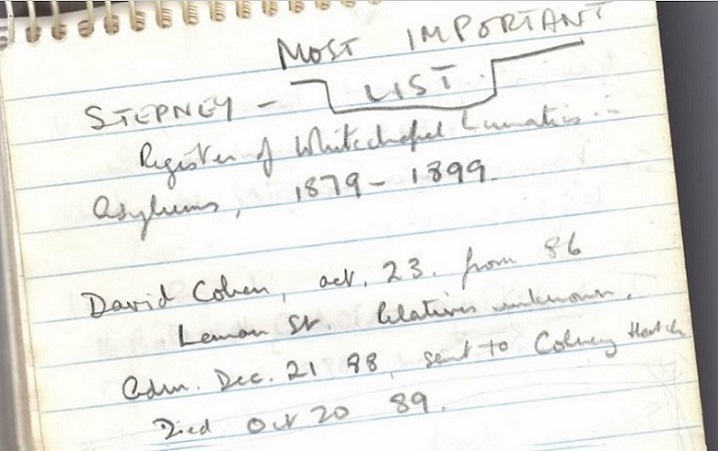 MOST IMPORTANT
STEPNEY - LIST
Register of Whitechapel Lunatics in
Asylums, 1879-1899.
David Cohen, aet. 23. from 86
Leman St. Relatives unknown.
Adm. Dec. 21 88, sent to Colney Hatch
Died Oct 20 89.